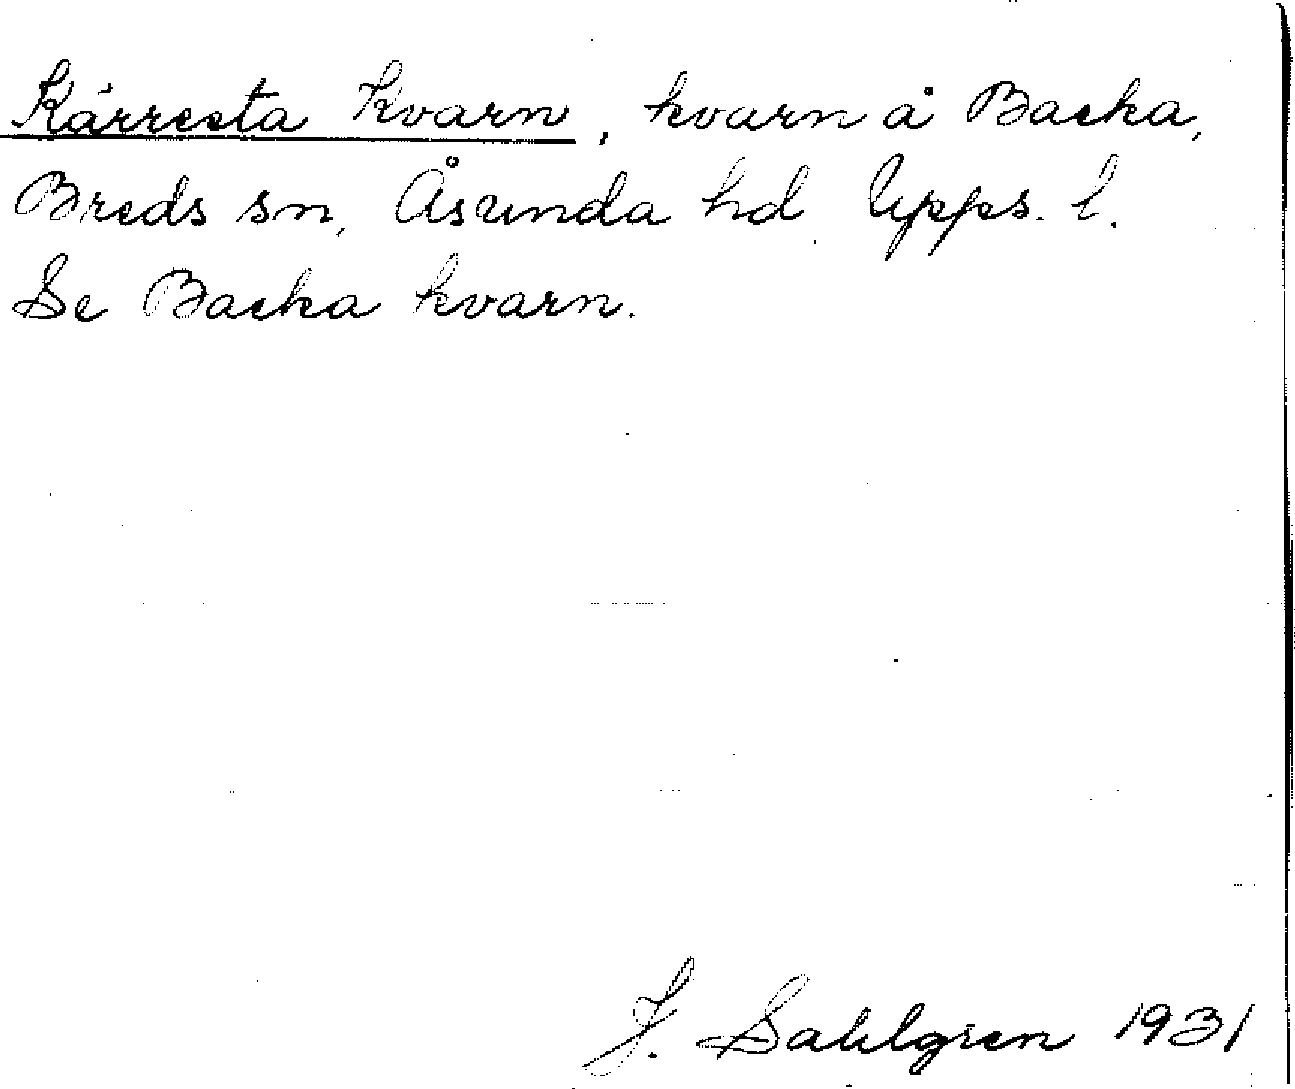 Kärresta kvarn, kvarn å Backa,
Breds sn, Åsunda hd, Upps. l.
Se Backa kvarn.
J. Sahlgren 1931